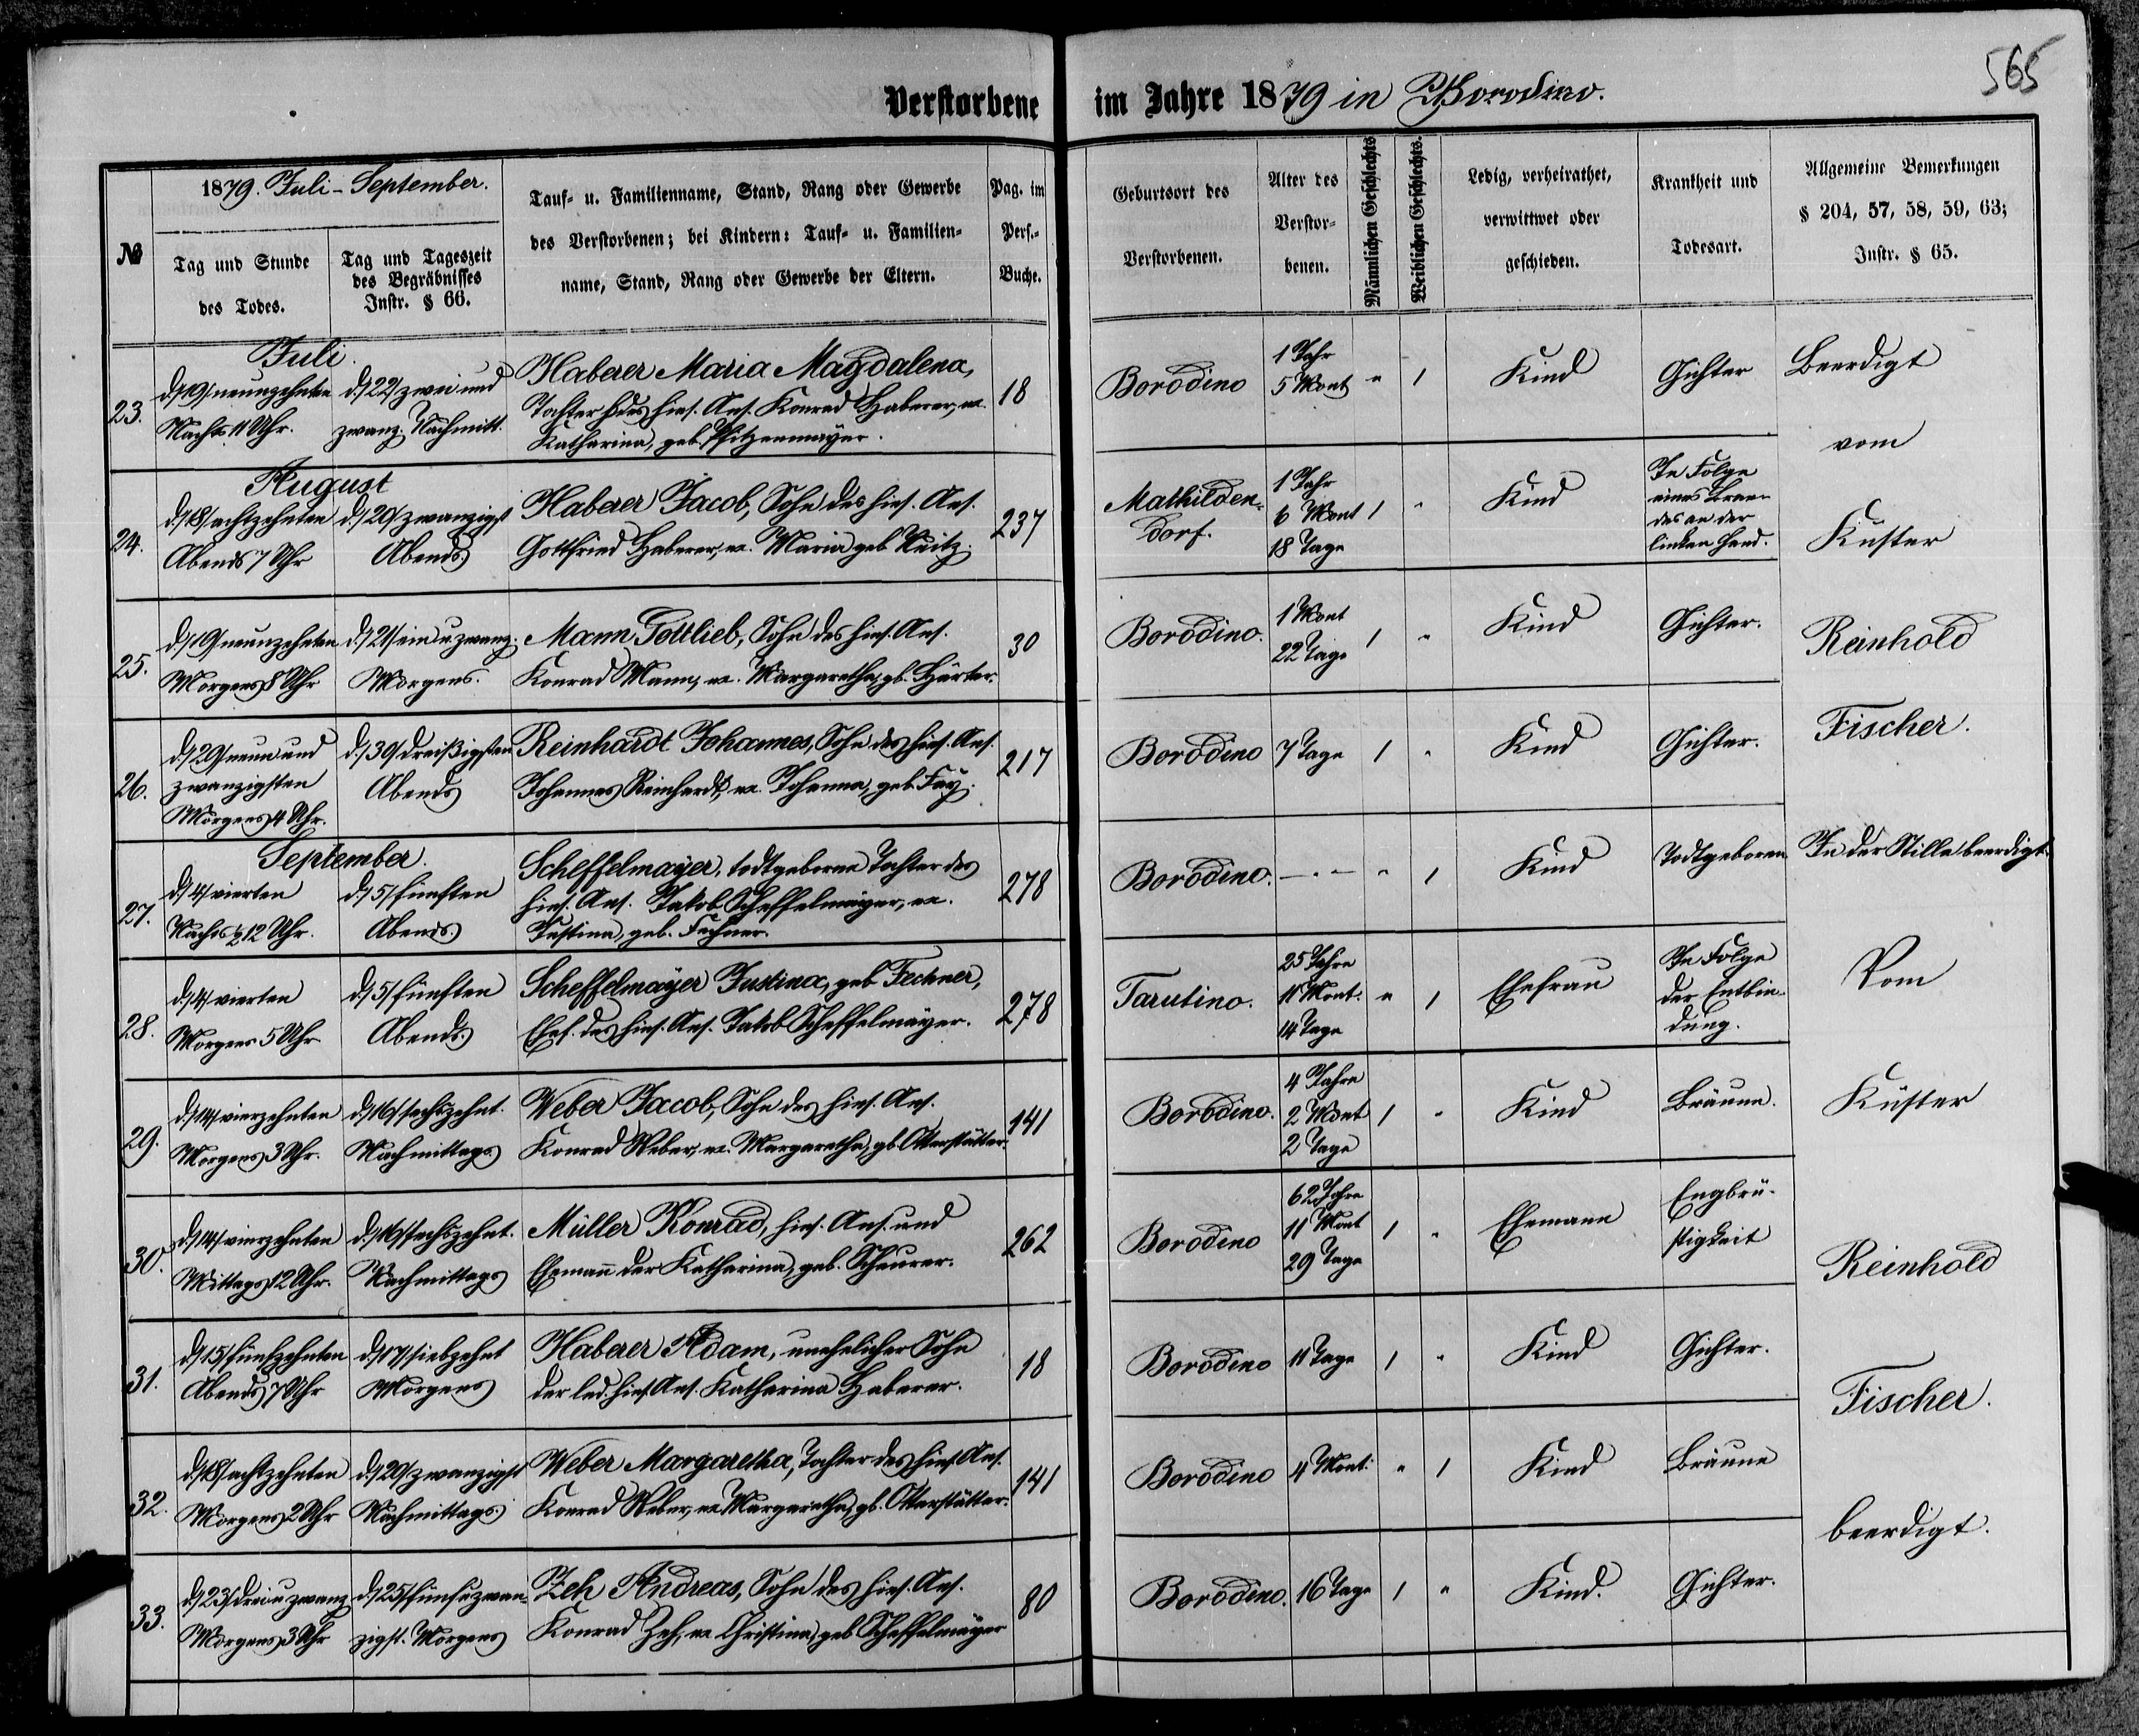 565
Verstorbene im Jahre 1879 in Borodino.
№
1879. Juli - September.
Tag und Stunde
des Todes.
Tag und Tageszeit
des Begräbnisses
Instr. § 66.
Tauf- u. Familienname, Stand, Rang oder Gewerbe
des Verstorbenen; bei Kindern: Tauf- u. Familien-
name, Stand, Rang oder Gewerbe der Eltern.
Pag. im
Pers.-
Buche.
Geburtsort des
Verstorbenen.
Alter des
Verstor-
benen.
Männlichen Geschlechts
Weiblichen Geschlechts.
Ledig, verheirathet,
verwittwet oder
geschieden.
Krankheit und
Todesart.
Allgemeine Bemerkungen
§ 204, 57, 58, 59, 63;
Instr. § 65.
Juli.
23.
d./19/neunzehnten
Nachts 11 Uhr.
d./22/zwei und
zwanz. Nachmitt.
Haberer Maria Magdalena,
Tochter des hies. Ans. Konrad Haberer, u.
Katharina, geb. Pfitzenmayer.
18
Borodino
1 Jahr
5 Mont
" 1
Kind
Gichter
Beerdigt
vom
August
24.
d./18/achtzehnten
Abends 7 Uhr
d./20/zwanzigst
Abends
Haberer Jacob, Sohn des hies. Ans.
Gottfried Haberer, u. Maria geb.
237
Mathilden-
dorf.
1 Jahr
6 Mont
18 Tage
1 "
Kind
In Folge
eines Bran-
des an der
linken Hand.
Küster
25.
d./19/neunzehnten
Morgens 8 Uhr
d./21/ein u. zwanz.
Morgens.
Mann Gottlieb, Sohn des hies. Ans.
Konrad Mann, u. Margaretha, gb. Härter.
30
Borodino.
1 Mont
22 Tage
1 "
Kind
Gichter.
Reinhold
26.
d./29/neun und
zwanzigsten
Morgens 4 Uhr.
d./30/dreißigsten
Abends
Reinhardt Johannes, Sohn des hies. Ans.
Johannes Reinhardt, u. Johanna, geb. Fay.
217
Borodino
7 Tage
1 "
Kind
Gichter.
Fischer.
September.
27.
d./4/vierten
Nachts 12 Uhr.
d./5/fünften
Abends
Scheffelmayer, todtgeborene Tochter des
hies. Ans. Jakob Scheffelmayer, u.
Justina, geb. Fechner.
278
Borodino.
" 1
Kind
Todtgeboren
In der Stille beerdigt.
28.
d./4/vierten
Morgens 5 Uhr
d./5/fünften
Abends.
Scheffelmayer Justina, geb. Fechner,
Ehef. des hies. Ans. Jakob Scheffelmayer.
278
Tarutino.
25 Jahre
11 Mont.
14 Tage
" 1
Ehefrau
In Folge
der Entbin-
dung.
Vom
29.
d./14/vierzehnten
Morgens 3 Uhr.
d./16/sechszehnt.
Nachmittags
Weber Jacob, Sohn des hies. Ans.
Konrad Weber, u. Margaretha, gb. Otterstätter.
141
Borodino.
4 Jahre
2 Mont
2 Tage
1 "
Kind
Bräune.
Küster
30.
d./14/vierzehnten
Mittags 12 Uhr.
d./16/sechszehnt.
Nachmittags
Müller Konrad, hies. Ans. und
Ehemann der Katharina, geb. Scheurer.
262
Borodino
62 Jahre
11 Mont
29 Tage
1 "
Ehemann
Engbrü-
stigkeit
Reinhold
31.
d./15/fünfzehnten
Abends 7 Uhr
d./17/siebzehnt
Morgens
Haberer Adam, unehelicher Sohn
der led. hies. Ans. Katharina Haberer.
18
Borodino
11 Tage
1 "
Kind
Gichter.
Fischer.
32.
d./18/achtzehnten
Morgens 2 Uhr
d./20/zwanzigst
Nachmittags
Weber Margaretha, Tochter des hies. Ans.
Konrad Weber, u. Margaretha, gb. Otterstätter.
141
Borodino
4 Mont.
" 1
Kind
Bräune
beerdigt.
33.
d./23/drei u. zwanz
Morgens 3 Uhr
d./25/fünf u. zwan-
zigst. Morgens
Zeh Andreas, Sohn des hies. Ans.
Konrad Zeh, u. Christina, geb. Scheffelmayer
80
Borodino.
16 Tage
1 "
Kind.
Gichter.